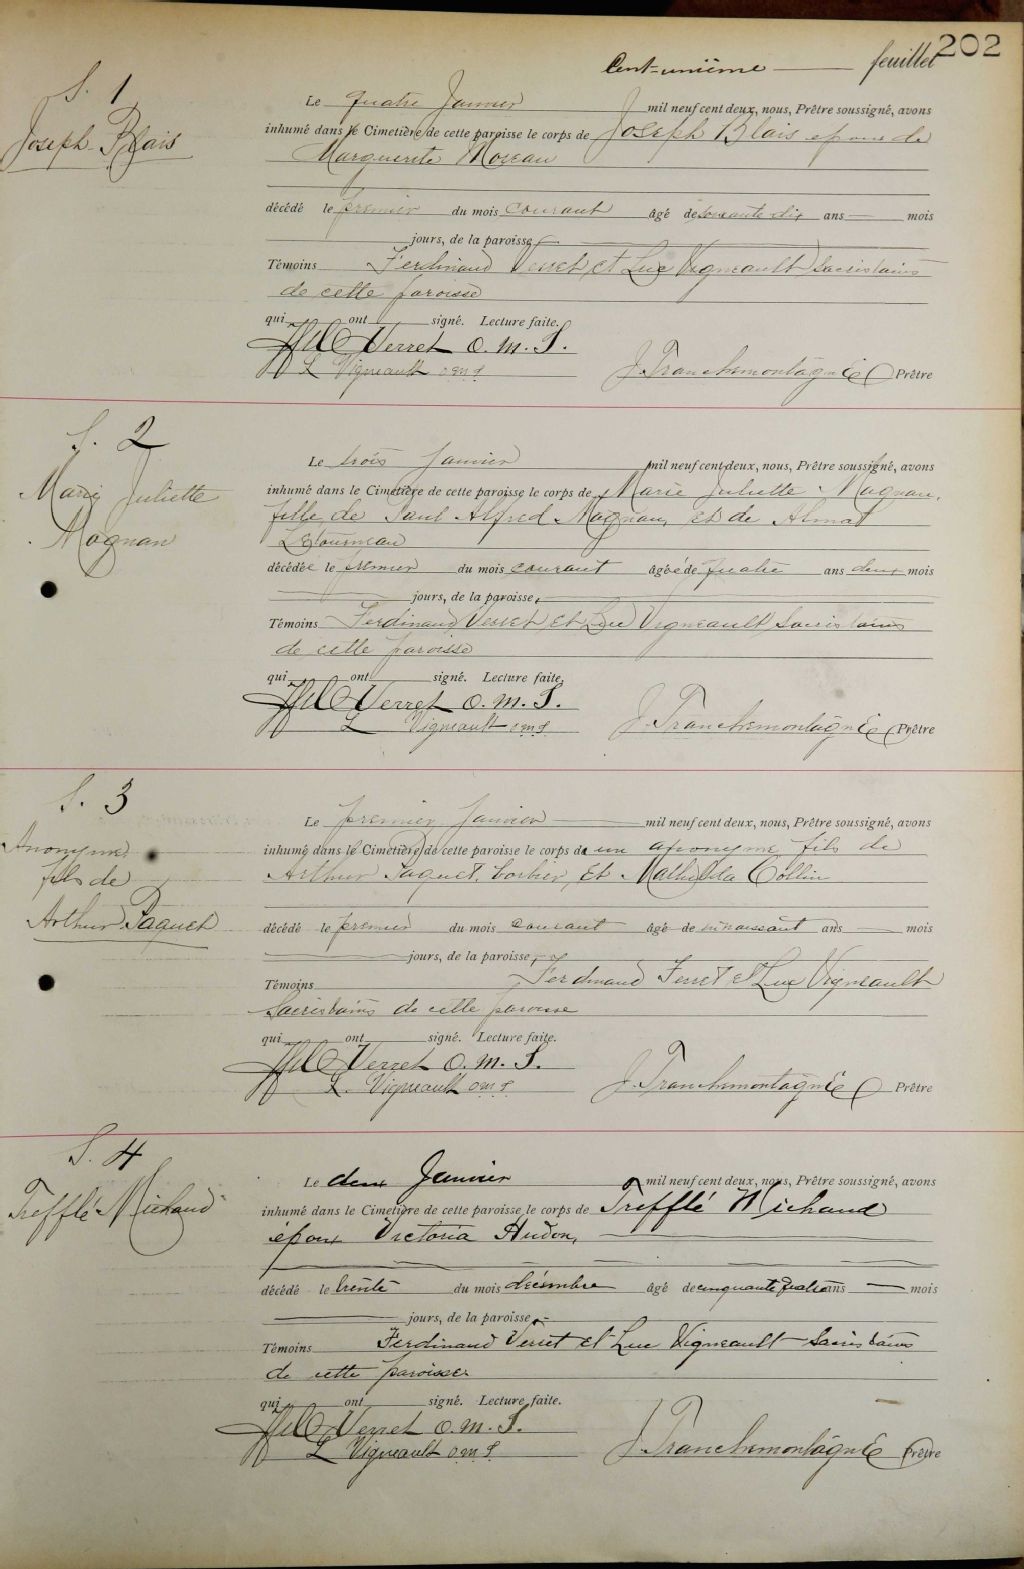 202
Cent-unième feuillet
S. 1
Joseph Blais
Le quatre Janvier mil neuf cent deux, nous, Prêtre soussigné, avons
inhumé dans le Cimetière de cette paroisse le corps de Joseph Blais époux de
Marguerite Moreau
décédé le premier du mois courant âgé de soixante dix ans — mois
jours, de la paroisse
Témoins Ferdinand Verret et Luc Vigneault Sacristains
de cette paroisse
qui ont signé. Lecture faite.
Verret O. M. S.
L Vigneault oms
J. Tranchemontagne Prêtre
S. 2
Marie Juliette
Magnan
Le trois Janvier mil neuf cent deux, nous, Prêtre soussigné, avons
inhumé dans le Cimetière de cette paroisse le corps de Marie Juliette Magnan,
fille de Paul Alfred Magnan, et de Alma
Létourneau
décédée le premier du mois courant âgée de quatre ans deux mois
jours, de la paroisse,
Témoins Ferdinand Verret et Luc Vigneault Sacristains
de cette paroisse
qui ont signé. Lecture faite,
Verret O. M. S.
L Vigneault oms
J. Tranchemontagne Prêtre
S. 3
Anonyme
fils de
Arthur Paquet
Le premier Janvier mil neuf cent deux, nous, Prêtre soussigné, avons
inhumé dans le Cimetière de cette paroisse le corps de un anonyme fils de
Arthur Paquet, et Mathilda Collin
décédé le premier du mois courant âgé de naissant ans — mois
jours, de la paroisse,
Témoins Ferdinand Verret et Luc Vigneault
Sacristains de cette paroisse
qui ont signé. Lecture faite.
Verret O. M. S.
L. Vigneault oms
J. Tranchemontagne Prêtre
S. 4
Trefflé Michaud
Le deux Janvier mil neuf cent deux, nous, Prêtre soussigné, avons
inhumé dans le Cimetière de cette paroisse le corps de Trefflé Michaud
époux Victoria Hudon,
décédé le trente du mois décembre âgé de cinquante quatre ans — mois
jours, de la paroisse
Témoins Ferdinand Verret et Luc Vigneault Sacristains
de cette paroisse
qui ont signé. Lecture faite.
Verret O. M. S.
L Vigneault oms
J. Tranchemontagne Prêtre